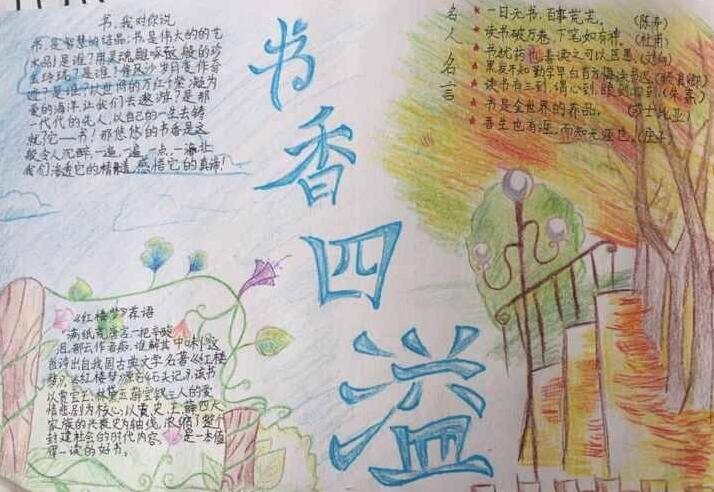 书,我对你说
书,是智慧的结晶;书,是伟大的的艺
术品!是谁?用灵魂雕琢
是谁?
以世间的万红千紫,凝为
爱的海洋,让我们去遨游?是那
一代代的先人,以自己的一生去铸
就了它——书!那悠悠的书香是这
般令人沉醉,一遍一遍,一点一滴,让
我们渗透它的精髓,感悟它的真谛!
书香四溢
名人名言
一日无书,百事荒芜。(陈寿)
读书破万卷,下笔如有神。(杜甫)
书犹药也,善读之可以医愚。(刘向)
黑发不知勤学早,白首方悔读书迟。(颜真卿)
读书有三到,谓心到,眼到,口到。(朱熹)
书是全世界的养品。(莎士比亚)
吾生也有涯,而知无涯也。(庄子)
《红楼梦》荐语
满纸荒唐言,一把辛酸
泪,都云作者痴,谁解其中味!这
首诗出自我国古典文学名著《红楼
梦》,《红楼梦》原名《石头记》,该书
以贾宝玉、林黛玉、薛宝钗三人的爱
情悲剧为核心,以贾、史、王、薛四大
家族的兴衰史为轴线,浓缩了整个
封建社会的时代内容,是一本值
得一读的好书。